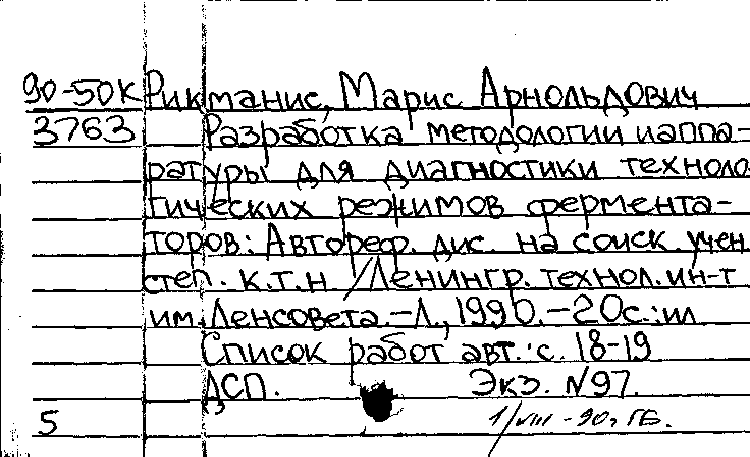 90-50К Рикманис, Марис Арнольдович
3763 Разработка методологии иаппа-
ратуры для диагностики техноло
гических режимов фермента-
торов: Автореф. дис. на соиск. учен
степ. к.т.н /Ленингр. технол. ин-т
им. Ленсовета.-Л., 1990.-20с.:ил
Список работ авт.: с. 18-19
ДСП. Экз. N97.
5 1/VIII-90г ГБ.